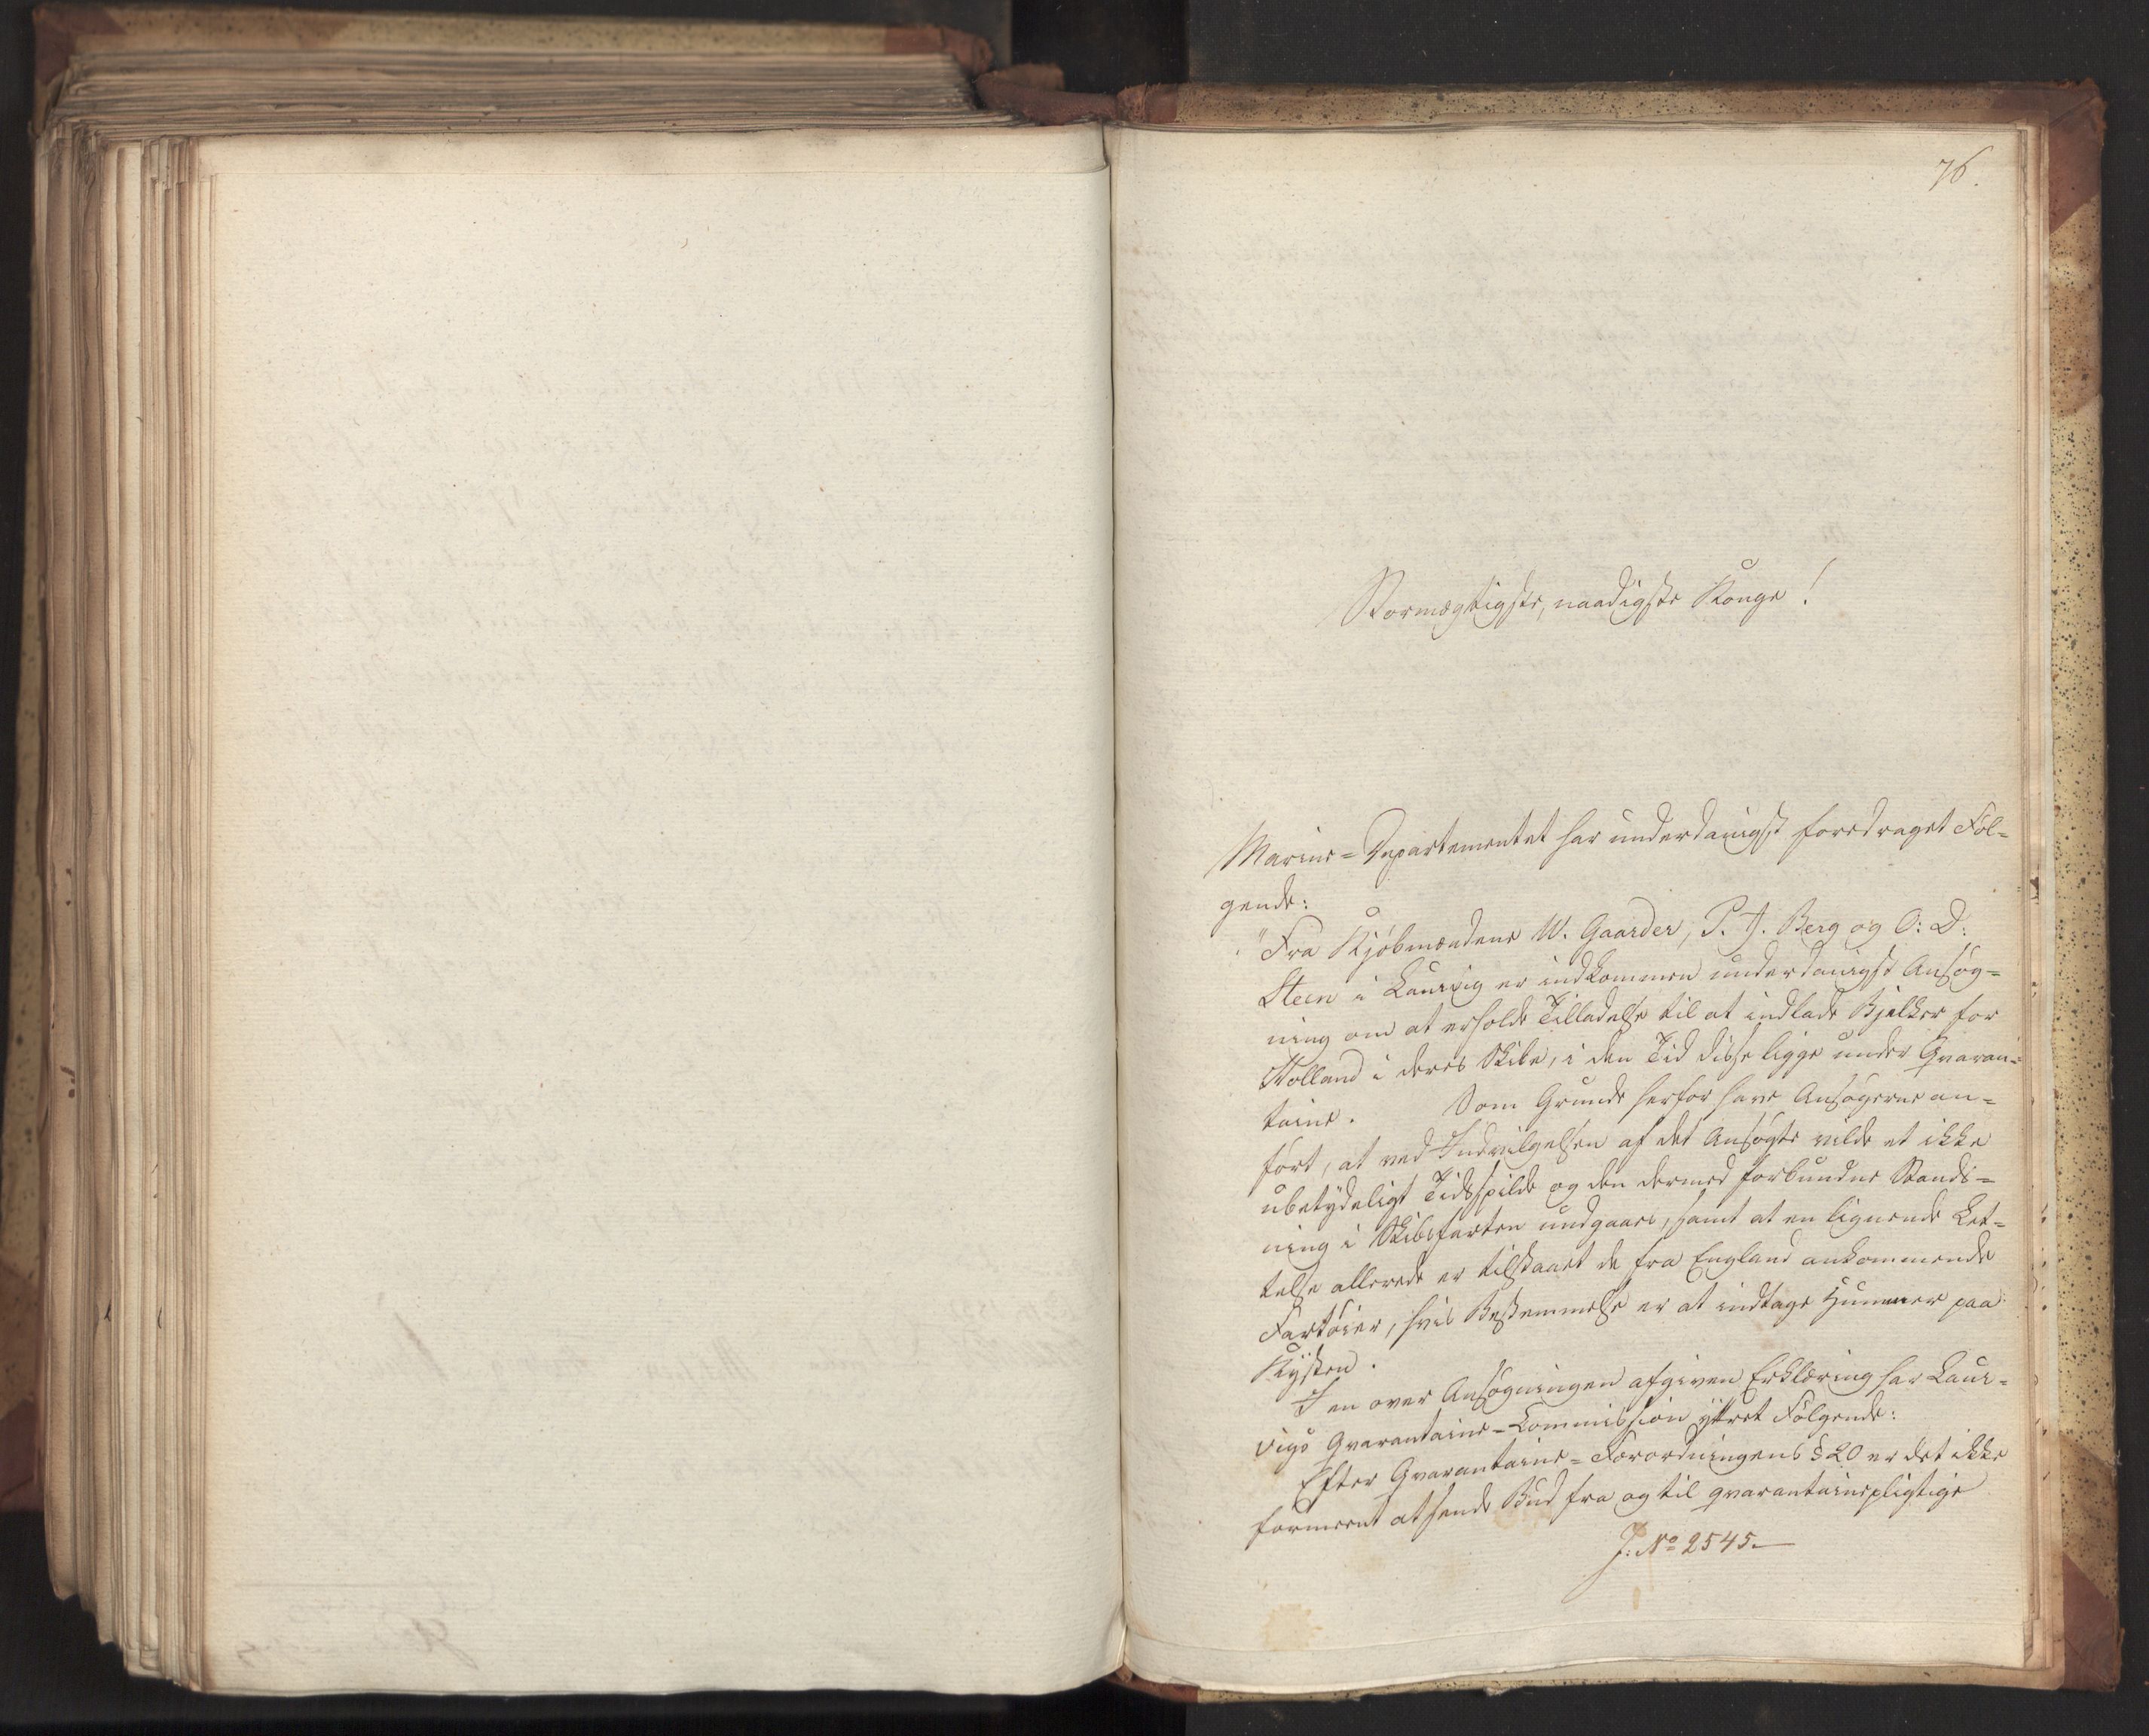 76.
Stormægtigste, naadigste Konge!
Marine=Departementet har underdanigst foredraget Föl=
gende:
"Fra Kjöbmændene W. Gaarder, P. J. Berg og O: D:
Steen i Laurvig er indkommen underdanigst Ansög=
ning om at erholde Tilladelse til at indlade Bjelker for
Holland i deres Skibe, i den Tid disse ligge under Qvaran=
taine. Som Grunde herfor have Ansögerne an=
fört, at ved Indvilgelsen af det Ansögte vilde et ikke
ubetydeligt Tidsspilde og den dermed forbundne Stands=
ning i Skibsfarten undgaaes, samt at en lignende Let=
telse allerede er tilstaaet de fra England ankommende
Fartöier, hvis Bestemmelse er at indtage Hummer paa
Kysten.
I en over Ansögningen afgiven Erklæring har Laur=
vigs Qvarantaine=Commission yttret Fölgende:
Efter Qvarantaine=Forordningens § 20 er det ikke
formeent at sende Bud fra og til qvarantainepligtige
J: No 2545.